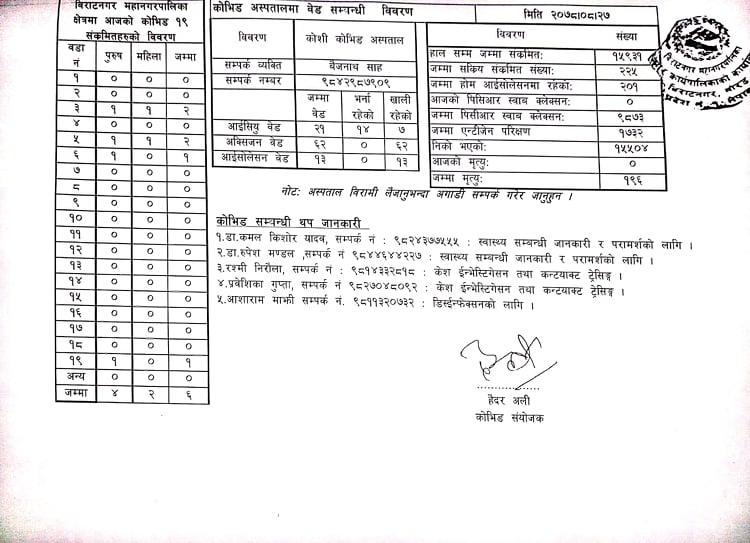 बिराटनगर महानगरपालिका
क्षेत्रमा आजको कोभिड १९
संक्रमितहरुको विवरण
वडा नं पुरुष महिला जम्मा
१ ० ० ०
२ ० ० ०
३ १ १ २
४ ० ० ०
५ १ १ २
६ १ ० १
७ ० ० ०
८ ० ० ०
९ ० ० ०
१० ० ० ०
११ ० ० ०
१२ ० ० ०
१३ ० ० ०
१४ ० ० ०
१५ ० ० ०
१६ ० ० ०
१७ ० ० ०
१८ ० ० ०
१९ १ ० १
अन्य ० ० ०
जम्मा ४ २ ६
कोभिड अस्पतालमा बेड सम्वन्धी विवरण
मिति २०७८।०८।२७
विवरण कोशी कोभिड अस्पताल
सम्पर्क व्यक्ति बैजनाथ साह
सम्पर्क नम्बर ९८४२९८७९०९
विवरण जम्मा बेड भर्ना रहेको खाली रहेको
आईसियु बेड २१ १४ ७
अक्सिजन बेड ६२ ० ६२
आईसोलेसन बेड १३ ० १३
विवरण संख्या
हाल सम्म जम्मा संक्रमित: १५९३१
जम्मा सक्रिय संक्रमित संख्या: २२५
जम्मा होम आईसोलेसनमा रहेको: २०१
आजको पिसिआर स्वाब क्लेक्सन: ०
जम्मा पिसीआर स्वाब क्लेक्सन: ९८७३
जम्मा एन्टीजेन परिक्षण १७३२
निको भएको: १५५०४
आजको मृत्यु: ०
जम्मा मृत्यु: १९६
नोट: अस्पताल बिरामी लैजानुभन्दा अगाडी सम्पर्क गरेर जानुहुन ।
कोभिड सम्वन्धी थप जानकारी
१.डा.कमल किशोर यादव, सम्पर्क नं : ९८२४३७७५५५ : स्वास्थ्य सम्वन्धी जानकारी र परामर्शको लागि ।
२.डा.रुपेश मण्डल ,सम्पर्क नं : ९८४४६४४२२७ : स्वास्थ्य सम्वन्धी जानकारी र परामर्शको लागि ।
३.रश्मी निरौला, सम्पर्क नं : ९८१४३३२८१८ : केश ईन्भेस्टिगेसन तथा कन्टयाक्ट ट्रेसिङ्ग ।
४.प्रवेशिका गुप्ता, सम्पर्क नं ९८२७०४८०९२ : केश ईन्भेस्टिगेसन तथा कन्टयाक्ट ट्रेसिङ्ग ।
५.आशाराम माझी सम्पर्क नं. ९८११३२०७३२ : डिस्ईन्फेक्सनको लागि ।
हैदर अली
कोभिड संयोजक